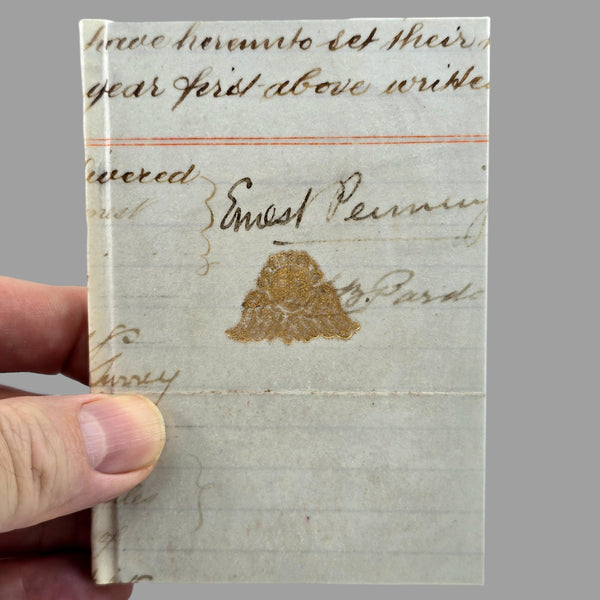 have hereunto set their
year first above written
livered
Ernest Penning
B. Pardo
Surrey
of